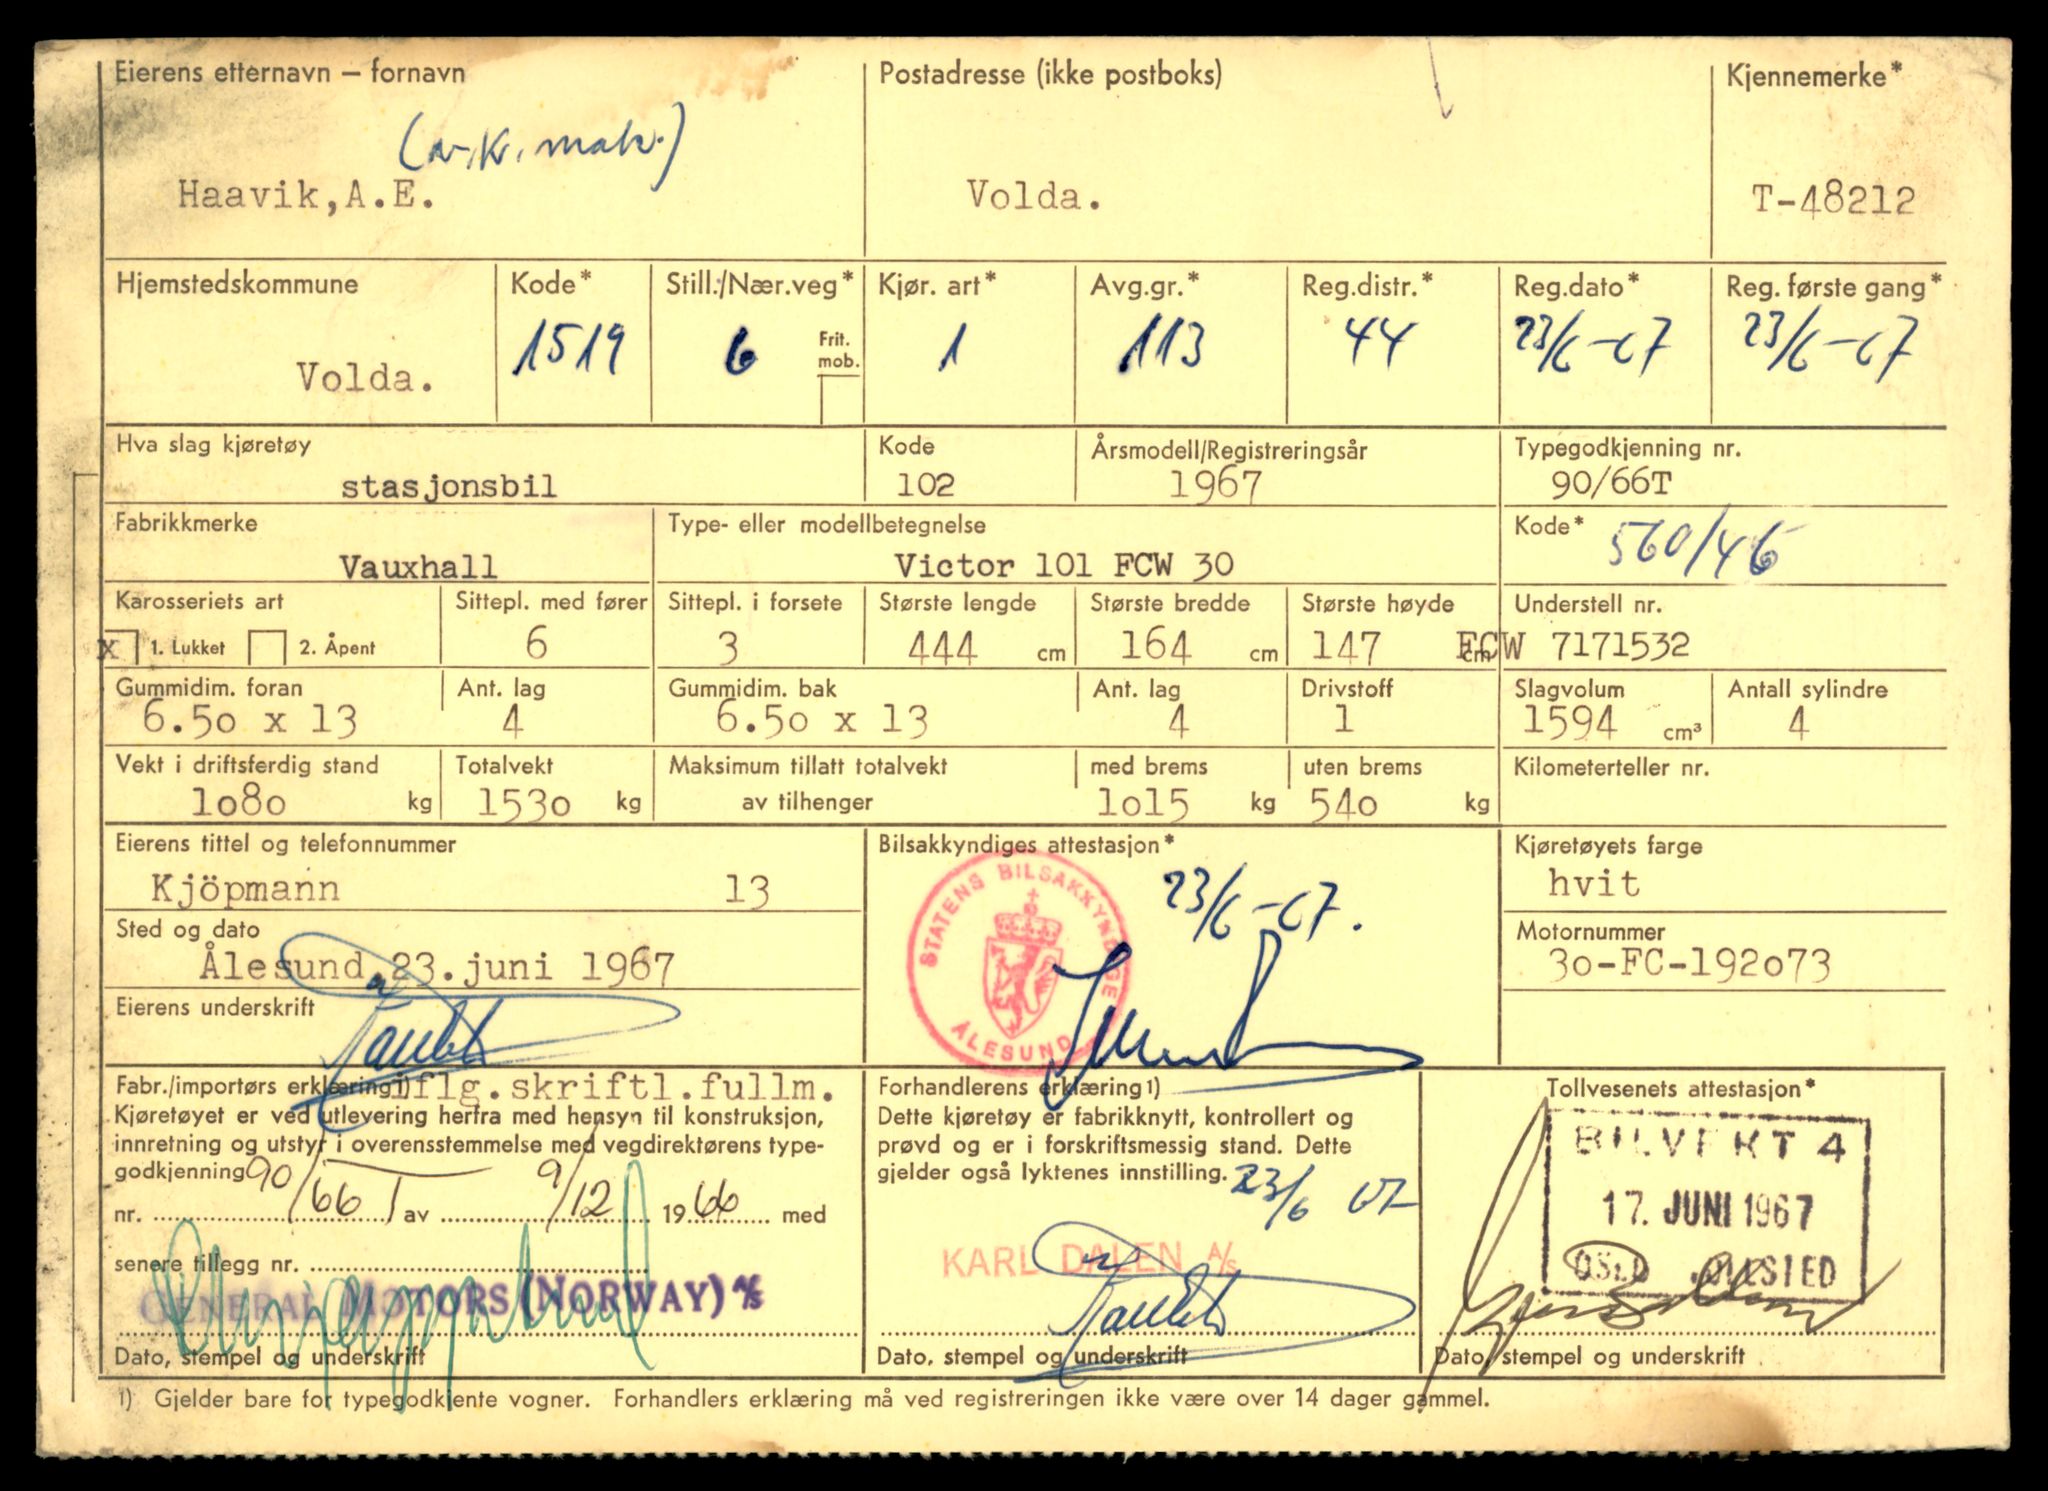 Eierens etternavn – fornavn
Postadresse (ikke postboks)
Kjennemerke*
Haavik,A.E.
Volda.
T-48212
Hjemstedskommune
Kode*
Still./Nær.veg*
Kjør. art*
Avg.gr.*
Reg.distr.*
Reg.dato*
Reg. første gang*
Volda.
1519
6
Frit. mob.
1
113
44
23/6-67
23/6-67
Hva slag kjøretøy
Kode
Årsmodell/Registreringsår
Typegodkjenning nr.
stasjonsbil
102
1967
90/66T
Fabrikkmerke
Type- eller modellbetegnelse
Kode*
560/46
Vauxhall
Victor 101 FCW 30
Karosseriets art
Sittepl. med fører
Sittepl. i forsete
Største lengde
Største bredde
Største høyde
Understell nr.
x 1. Lukket 2. Åpent
6
3
444 cm
164 cm
147 cm
FCW 7171532
Gummidim. foran
Ant. lag
Gummidim. bak
Ant. lag
Drivstoff
Slagvolum
Antall sylindre
6.50 x 13
4
6.50 x 13
4
1
1594 cm³
4
Vekt i driftsferdig stand
Totalvekt
Maksimum tillatt totalvekt
med brems
uten brems
Kilometerteller nr.
1080 kg
1530 kg
av tilhenger
1015 kg
540 kg
Eierens tittel og telefonnummer
Bilsakkyndiges attestasjon*
Kjøretøyets farge
Kjöpmann 13
STATENS BILSAKKYNDIGE
ÅLESUND
23/6-67.
hvit
Sted og dato
Motornummer
Ålesund,23.juni 1967
30-FC-192073
Eierens underskrift
Fabr./importørs erklæring1)
iflg.skriftl.fullm.
Kjøretøyet er ved utlevering herfra med hensyn til konstruksjon,
innretning og utstyr i overensstemmelse med vegdirektørens type-
godkjenning
nr. 90/66 T av 9/12 1966 med
senere tillegg nr.
GENERAL MOTORS (NORWAY) A/S
Dato, stempel og underskrift
Forhandlerens erklæring1)
Dette kjøretøy er fabrikknytt, kontrollert og
prøvd og er i forskriftsmessig stand. Dette
gjelder også lyktenes innstilling.
23/6 67
KARL DALEN A/S
Dato, stempel og underskrift
Tollvesenets attestasjon*
BILVEKT 4
17. JUNI 1967
OSLO
Dato, stempel og underskrift
1) Gjelder bare for typegodkjente vogner. Forhandlers erklæring må ved registreringen ikke være over 14 dager gammel.